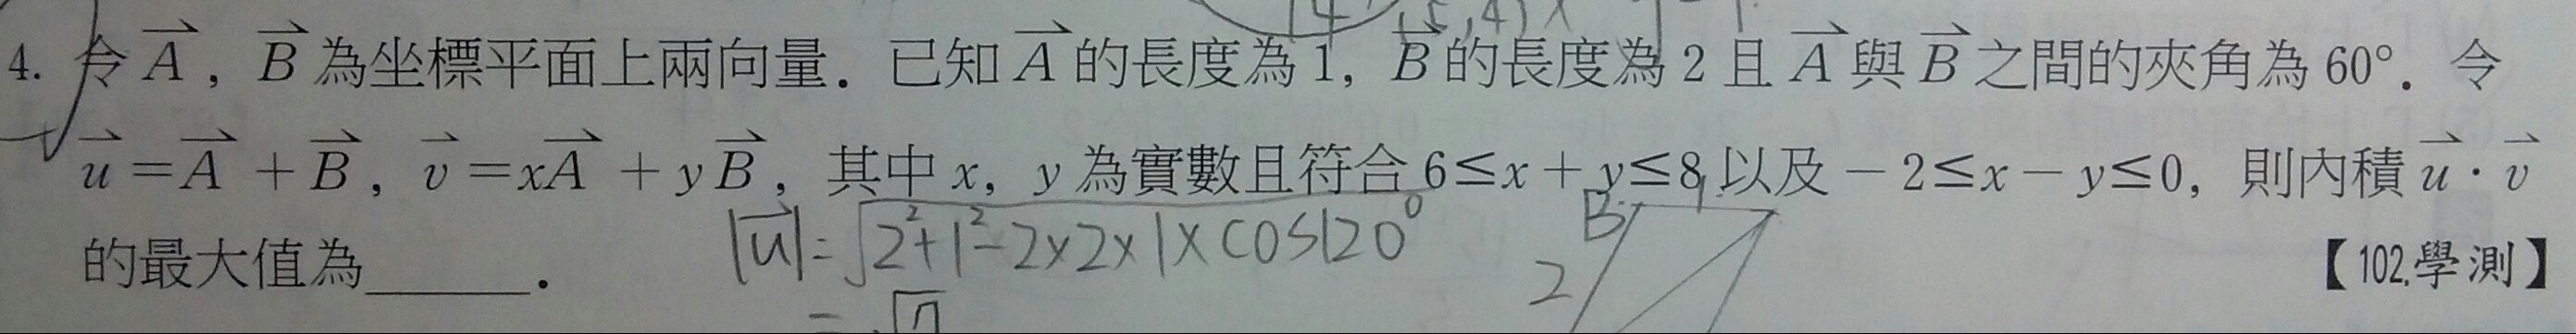 (5,4)
4. 令 A⃗ , B⃗ 為坐標平面上兩向量. 已知 A⃗ 的長度為 1, B⃗ 的長度為 2 且 A⃗ 與 B⃗ 之間的夾角為 60°. 令
u⃗ = A⃗ + B⃗ , v⃗ = xA⃗ + yB⃗ , 其中 x, y 為實數且符合 6≤x+y≤8 以及 −2≤x−y≤0, 則內積 u⃗ · v⃗
的最大值為______. 【102.學測】
|u⃗| = √(2²+1²−2×2×1×cos120°)
B 1
2
= √7